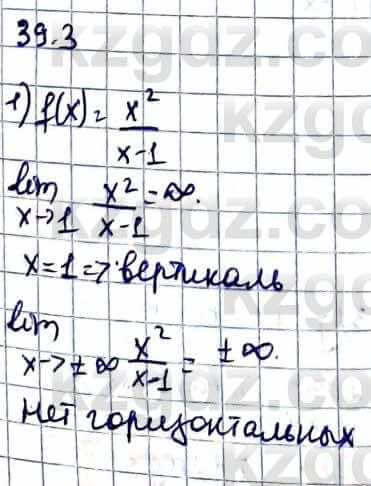 39.3
1) f(x) = x²/(x-1)
lim x→1 x²/(x-1) = ∞.
x=1 => вертикаль
lim x→±∞ x²/(x-1) = ±∞.
Нет горизонтальных